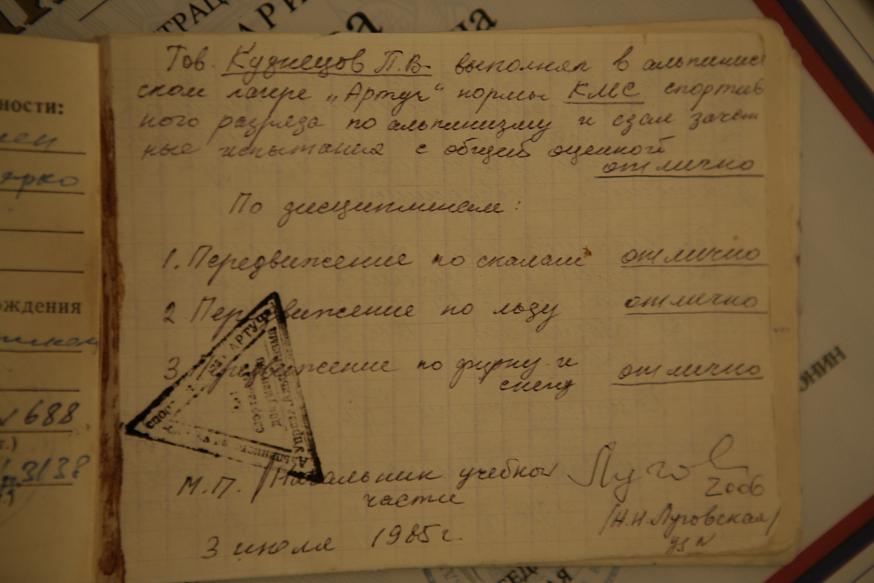 Тов. Кузнецов П.В. выполнил в альпинист
ском лагере „Артуч“ нормы КМС спортив
ного разряда по альпинизму и сдал зачет
ные испытания с общей оценкой
отлично
По дисциплинам:
1. Передвижение по скалам отлично
2 Передвижение по льду отлично
3. Передвижение по фирну и
снегу отлично
М.П. Начальник учебной
части
2006
/Н.Н.Луговская/
3 июля 1985г.
ности:
ярко
ождения
688
3138
АРТУЧ
ОНИН